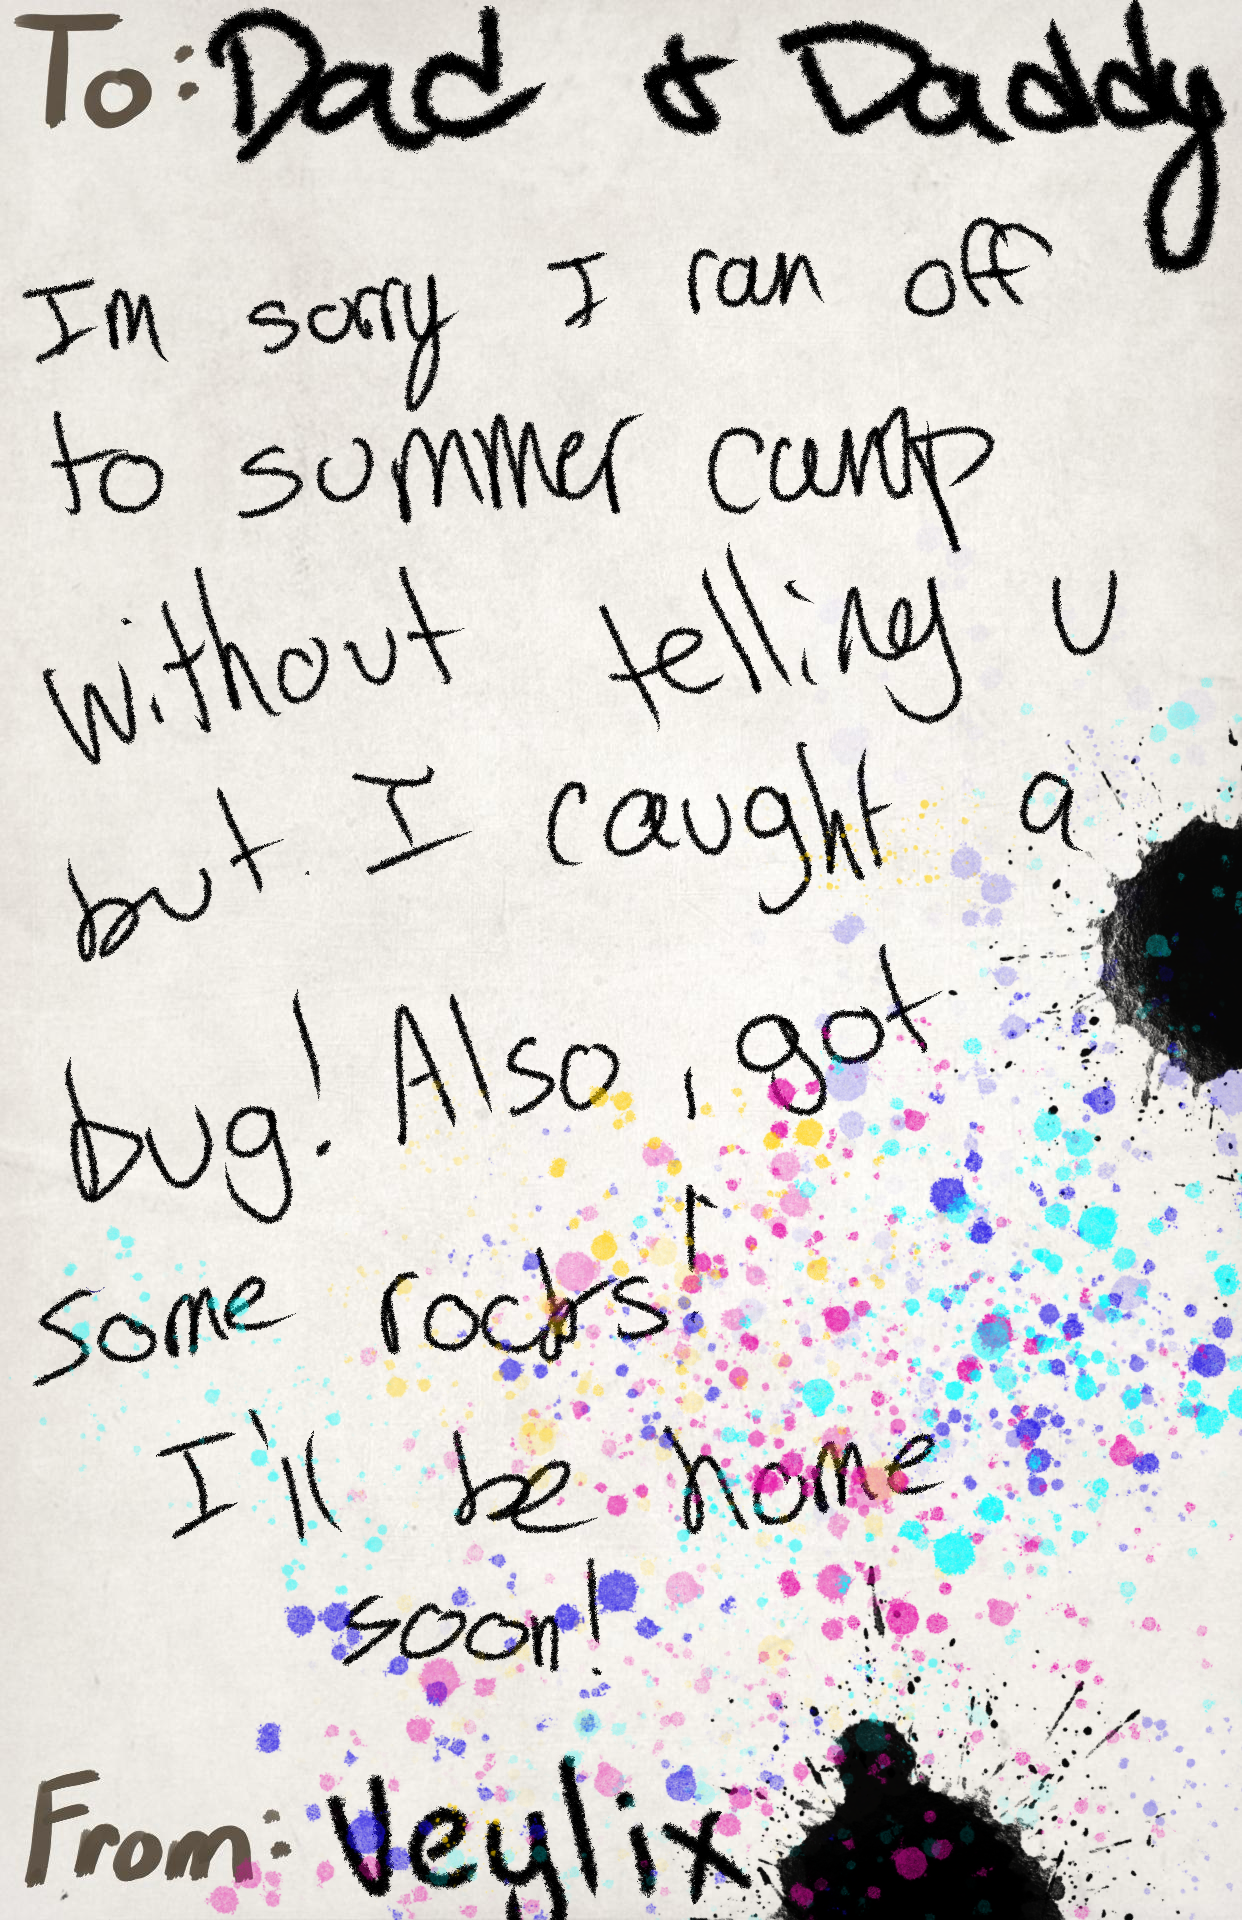 To: Dad & Daddy
Im sorry I ran off
to summer camp
without telling u
but I caught a
bug! Also, got
some rocks!
I'll be home
soon!
From: Veylix